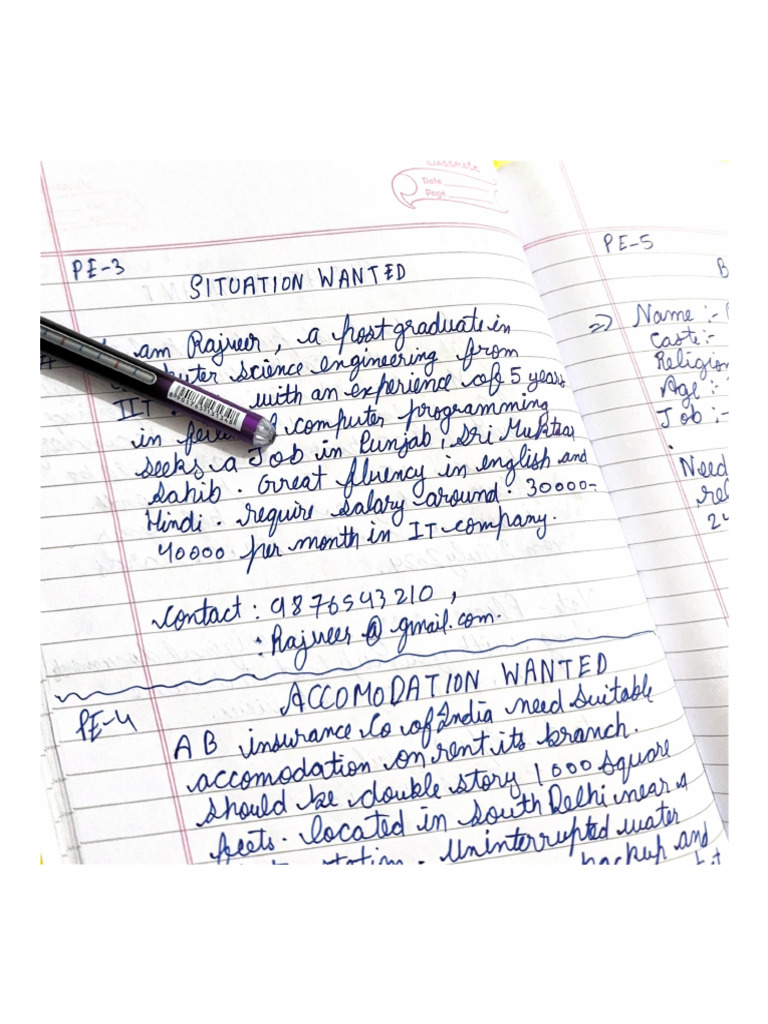 classmate
Date
Page
PE-3
SITUATION WANTED
am Rajveer, a postgraduate in
science engineering from
IIT with an experience of 5 years
in computer programming
seeks a Job in Punjab, Sri Muktsar
Sahib. Great fluency in english and
Hindi. require salary around. 30000-
40000 per month in IT company.
Contact: 9876543210,
: Rajveer@gmail.com.
PE-4
ACCOMODATION WANTED
AB insurance Co of India need suitable
accomodation on rent its branch.
Should be double story 1000 square
feets. located in South Delhi near
Uninterrupted water
backup and
PE-5
B
⇒ Name :-
Caste :-
Religion
Age :-
Job :-
Need
rel
24